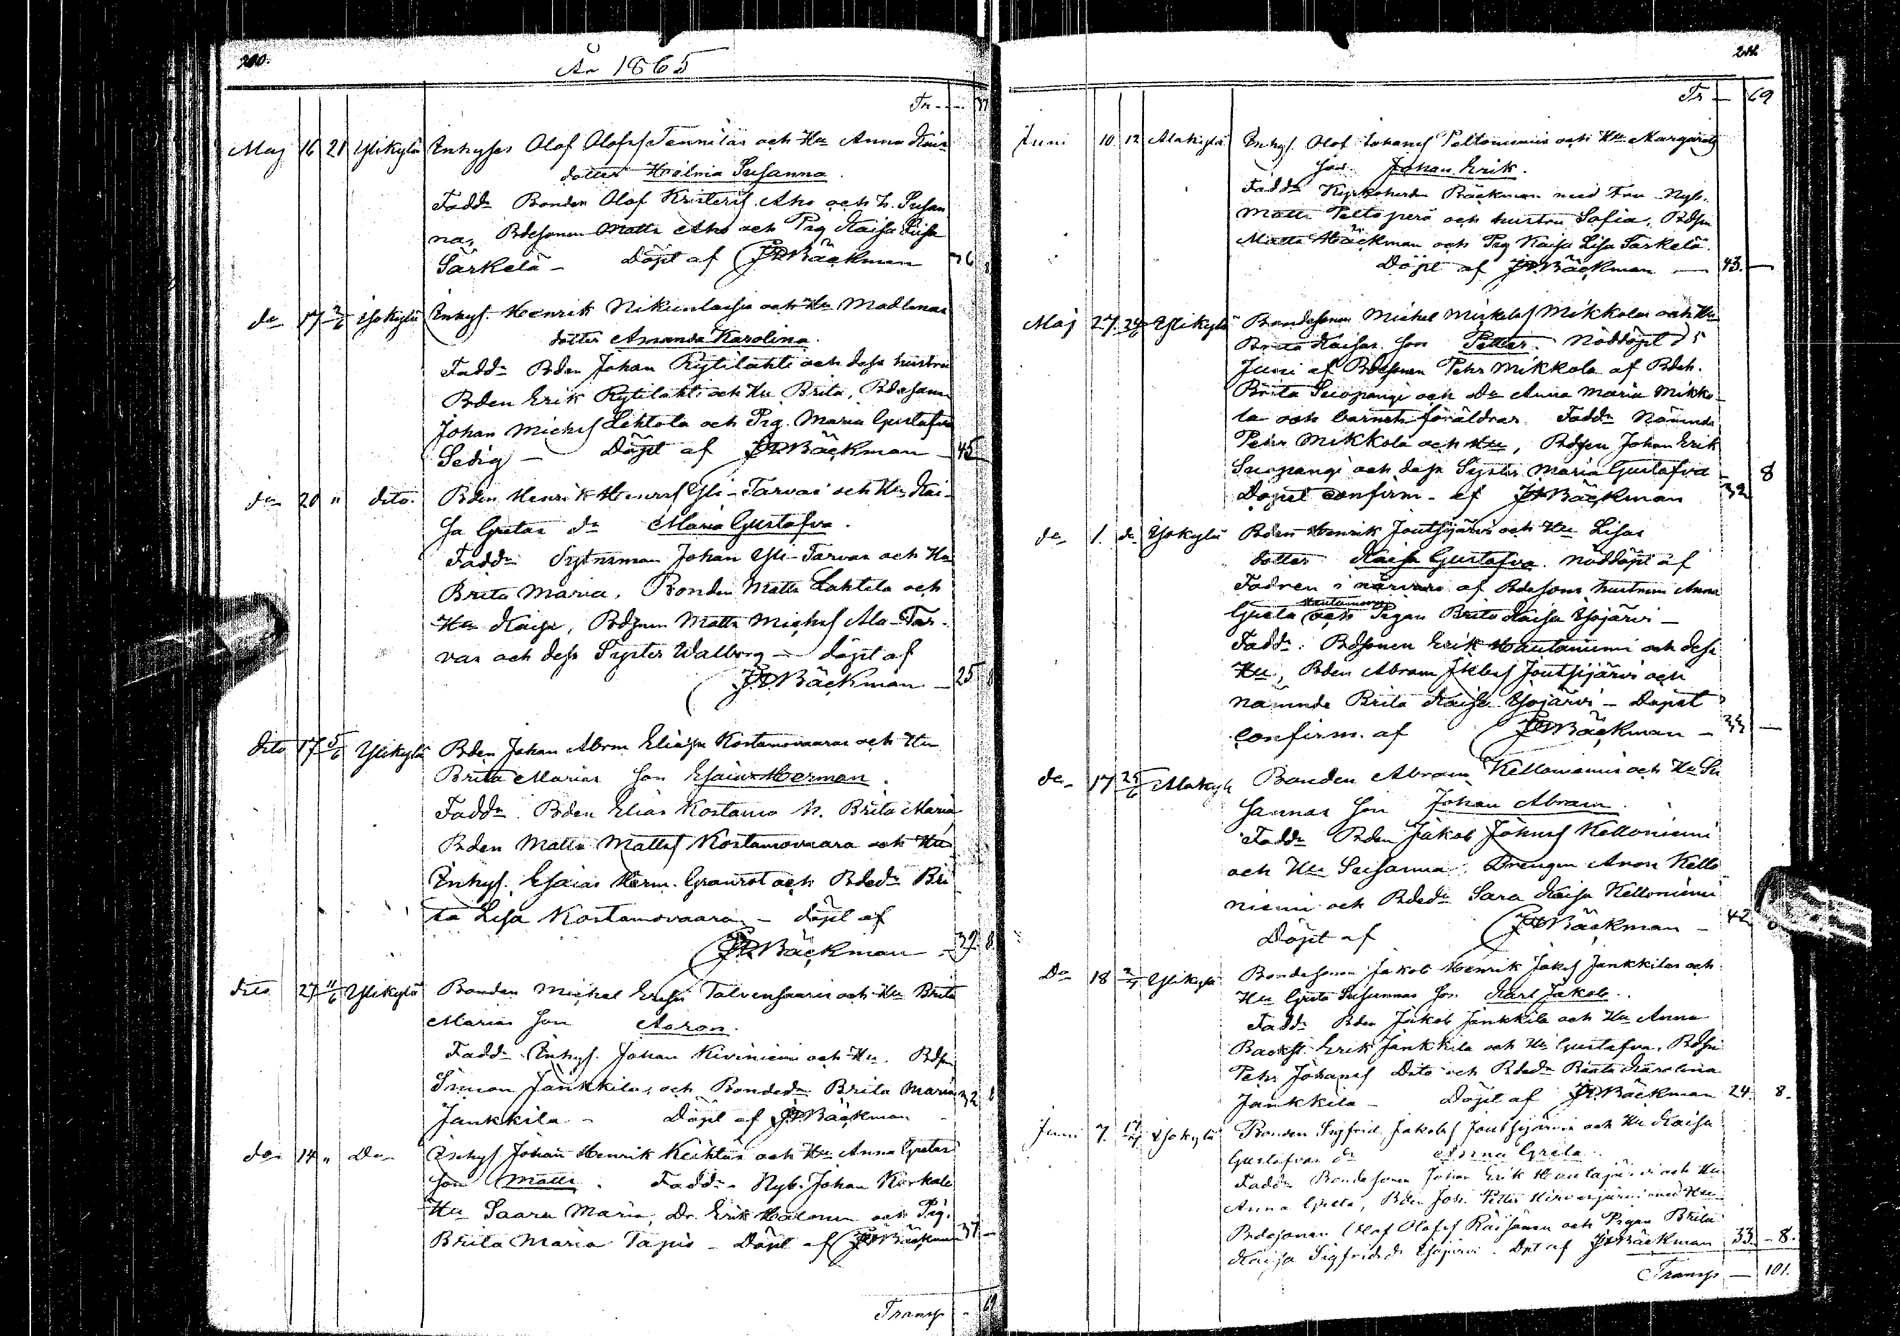 210.
År 1865
Tr. -
Maj 16 21 Ylikylä Inhyses Olof Olofsf Tennilas och Hu Anna Kais
dotter Helmina Susanna.
Fadd. Bonden Olof Kristersf Aho och h. Susan
na, Bdesonen Matts Aho och Pig. Kaisa Lisa
Särkelä - Döpt af JBäckman 36
do 17 Ysokylä Inhys. Henrik och Hu Madlenas
dotter Amanda Karolina.
Fadd. Bden Johan Rytilahti och dess hustru
Bden Erik Rytilahti och Hu Brita, Bdesonen
Johan Michelsf Lehtola och Pig. Maria Gustafva
Sedig - Döpt af JBäckman - 45
do 20 " dito. Bden Henrik Henrsf Yli-Tarvas och Hu Kai-
sa Gretas dr Maria Gustafva.
Fadd. Sytnsman Johan Yli-Tarvas och Hu
Brita Maria, Bonden Matts Lahtela och
Hu Kaisa, Bdsonen Matts Michelsf Ala-Tar-
vas och dess Syster Walborg - döpt af
JBäckman - 25
dito 17 5/6 Ylikylä Bden Johan Abrm Eliassn Kostamovaaras och Hu
Brita Marias son Esaias Herman.
Fadd. Bden Elias Kostamo h. Brita Maria
Bden Matts Mattsf Kostamovaara och Hu
Inhys. Esaias Herm. Granrot och Bdedr Bri
ta Lisa Kostamovaara - döpt af
JBäckman - 39. 8
dito 27 11/6 Ylikylä Bonden Michel Talvensaaris och Hu Brita
Marias son Aaron.
Fadd. Inhys. Johan Kiviniemi och Hu. Bdsn
Simon Jankkila, och Bondedr Brita Maria 32 8
Jankkila - Döpt af JBäckman -
do 14 " Do Inhys Johan Henrik Keihtas och Hu Anna Gretas
son Matts. Fadd. Nyb. Johan Korkalo
Hu Saara Maria, Dr. Erik Halonen och Pig.
Brita Maria Tapio - Döpt af JBäckman 37 -
Transp - 69
211.
Tr - 69
Juni 10 12 Alakylä Inhys. Olof Johansf Peltoniemis och Hu Margarets
son Johan Erik.
Fadd. Kyrkoherden Bäckman med Fru Nyb.
Matts Peltoperä och hustru Sofia, Bdsn
Matts Bäckman och Pig Kaisa Lisa Särkelä.
Döpt af JBäckman - 43. -
Maj 27. Ylikylä Bondesonen Michel Mickelsf Mikkolas och Hu
Brita Kaisas son Petter. Nöddöpt d 5
Juni af Bdsonen Pehr Mikkola af Bdeh.
Brita Suopangi och Do Anna Maria Mikko-
la och barnets föräldrar. Fadd. Nämnde
Pehr Mikkola och Hu, Bdsen Johan Erik
Suopangi och dess Syster Maria Gustafva - 8
Dopet confirm. af JBäckman 32
do 1. do Ysokylä Bden Henrik Joutsijärvis och Hu Lisas
dotter Kaisa Gustafva. nöddöpt af
Fadren i närvaro af Bdesons hustrun Anna
Greta Hautaniemi och Pigan Brita Kaisa Ysojärvi -
Fadd. Bdsonen Erik Hautaniemi och dess
Hu, Bden Abram Joutsijärvi och
nämnde Brita Kaisa Ysojärvi - Dopet
confirm. af JBäckman - 33 -
do 17 25/6 Alakylä Bonden Abram Kelloniemis och Hu Su
sannas son Johan Abram.
Fadd. Bden Jakob Johansf Kelloniemi
och Hu Susanna, Drengen Aron Kello
niemi och Bdedr Sara Kaisa Kelloniemi
Döpt af JBäckman - 42
Do 18 2/7 Ylikylä Bondesonen Jakob Henrik Jakosf Jankkilas och
Hu Greta Susannas son Karl Jakob.
Fadd. Bden Jakob Jankkila och Hu Anna
Backst. Erik Jankkila och Hu Gustafva, Bdsn
Pehr Johansf Dito och Bdedr Brita Karolina
Jankkila - Döpt af JBäckman 24. 8.
Juni 7. Ysokylä Bonden Sigfrid Jakobsf Joutsijärvis och Hu Kaisa
Gustafvas dr Anna Greta.
Fadd. Bondesonen Johan Erik Hautajärvi och Hu
Anna Greta, Bden Joh. Petter Hirvasjärvi med Hu
Bdesonen Olof Olofsf Räisänen och Pigan Brita
Kaisa Sigfridsdr Ysojärvi. Dpt af JBäckman 33. - 8.
Transp - 101.